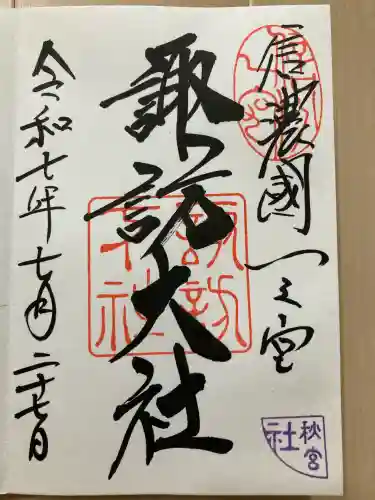 信濃國一之宮
諏訪大社
令和七年七月二十七日
諏訪
大社
秋宮
社